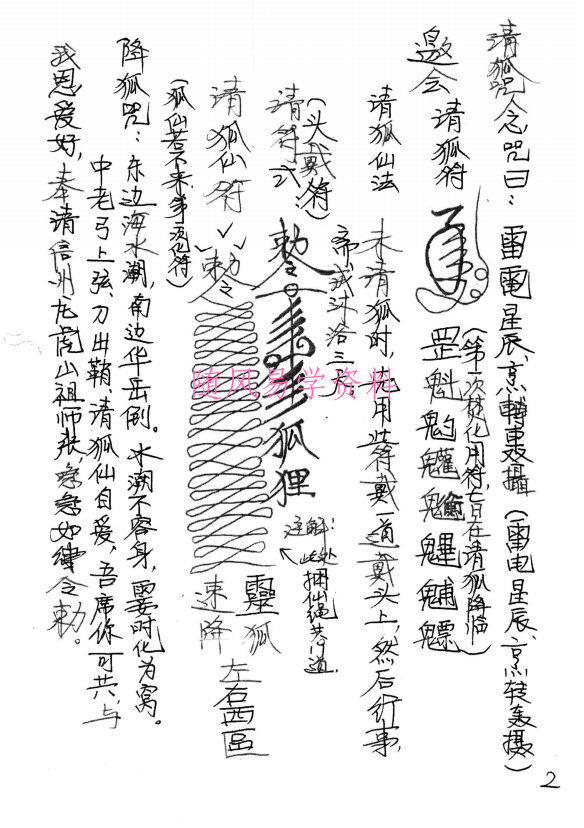 请狐咒念咒曰：雷電星辰、烹轉轰攝（雷电星辰、烹转轰摄）
邀会 请狐符 罡魁魀魓魒魓魓魒
（第一次焚化用符七日在请狐降临）
请狐仙法 未请狐时，先用此符戴一道戴头上，然后行事，
斋戒沐浴三日
（头戴符）
请符式 勅令 狐狸
注解：此处捆仙绳共 道
请狐仙符 勅令 靈狐 速降 左右西區
（狐仙若不来第二次化符）
降狐咒：东边海水潮，南边华岳倒。水潮不容身，霎时化为窝。
中老弓上弦，刀出鞘，请狐仙自爱，吾席你可共，与
我恩爱好，奉请信州龙虎山祖师张 急急如律令勅。
随风易学资料
2